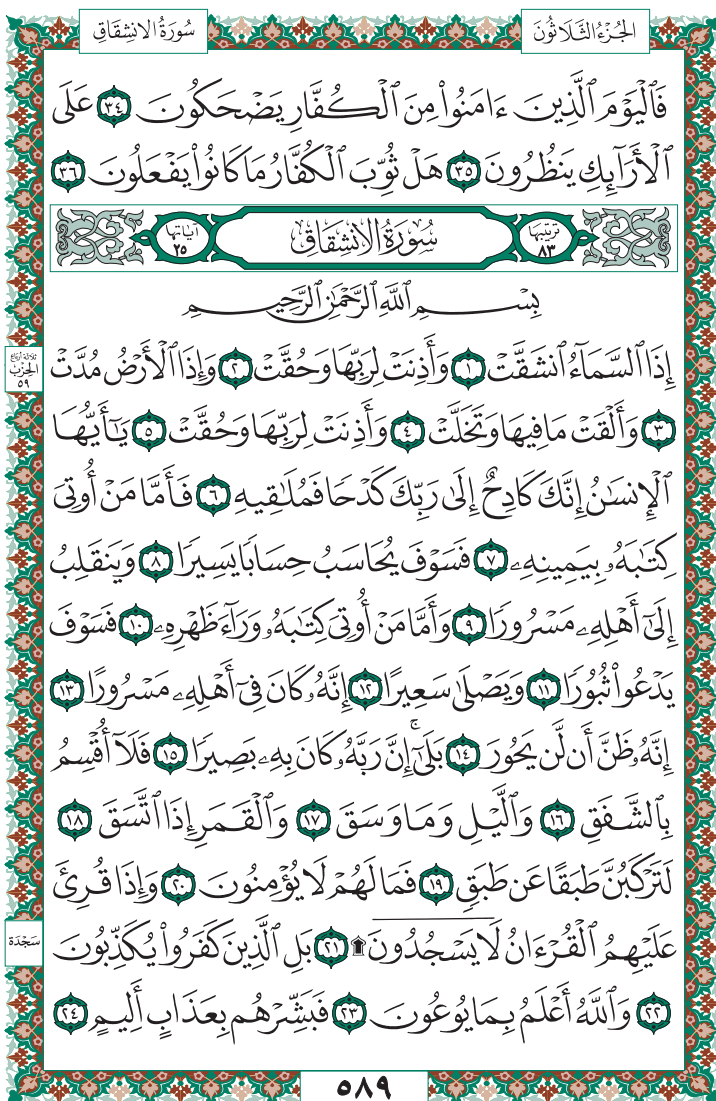 الجُزْءُ الثَّلَاثُونَ
سُورَةُ الانشِقَاقِ
فَٱلْيَوْمَ ٱلَّذِينَ ءَامَنُواْ مِنَ ٱلْكُفَّارِ يَضْحَكُونَ ٣٤ عَلَى
ٱلْأَرَآئِكِ يَنظُرُونَ ٣٥ هَلْ ثُوِّبَ ٱلْكُفَّارُ مَا كَانُواْ يَفْعَلُونَ ٣٦
ترتيبها ٨٣ سُورَةُ الانشِقَاقِ آياتها ٢٥
بِسْمِ ٱللَّهِ ٱلرَّحْمَٰنِ ٱلرَّحِيمِ
إِذَا ٱلسَّمَآءُ ٱنشَقَّتْ ١ وَأَذِنَتْ لِرَبِّهَا وَحُقَّتْ ٢ وَإِذَا ٱلْأَرْضُ مُدَّتْ
٣ وَأَلْقَتْ مَا فِيهَا وَتَخَلَّتْ ٤ وَأَذِنَتْ لِرَبِّهَا وَحُقَّتْ ٥ يَٰٓأَيُّهَا
ٱلْإِنسَٰنُ إِنَّكَ كَادِحٌ إِلَىٰ رَبِّكَ كَدْحًا فَمُلَٰقِيهِ ٦ فَأَمَّا مَنْ أُوتِىَ
كِتَٰبَهُۥ بِيَمِينِهِۦ ٧ فَسَوْفَ يُحَاسَبُ حِسَابًا يَسِيرًا ٨ وَيَنقَلِبُ
إِلَىٰٓ أَهْلِهِۦ مَسْرُورًا ٩ وَأَمَّا مَنْ أُوتِىَ كِتَٰبَهُۥ وَرَآءَ ظَهْرِهِۦ ١٠ فَسَوْفَ
يَدْعُواْ ثُبُورًا ١١ وَيَصْلَىٰ سَعِيرًا ١٢ إِنَّهُۥ كَانَ فِىٓ أَهْلِهِۦ مَسْرُورًا ١٣
إِنَّهُۥ ظَنَّ أَن لَّن يَحُورَ ١٤ بَلَىٰٓۚ إِنَّ رَبَّهُۥ كَانَ بِهِۦ بَصِيرًا ١٥ فَلَآ أُقْسِمُ
بِٱلشَّفَقِ ١٦ وَٱلَّيْلِ وَمَا وَسَقَ ١٧ وَٱلْقَمَرِ إِذَا ٱتَّسَقَ ١٨
لَتَرْكَبُنَّ طَبَقًا عَن طَبَقٍ ١٩ فَمَا لَهُمْ لَا يُؤْمِنُونَ ٢٠ وَإِذَا قُرِئَ
عَلَيْهِمُ ٱلْقُرْءَانُ لَا يَسْجُدُونَ ۩ ٢١ بَلِ ٱلَّذِينَ كَفَرُواْ يُكَذِّبُونَ
٢٢ وَٱللَّهُ أَعْلَمُ بِمَا يُوعُونَ ٢٣ فَبَشِّرْهُم بِعَذَابٍ أَلِيمٍ ٢٤
ثلاثة أرباع
الحِزْب
٥٩
سَجْدَة
٥٨٩